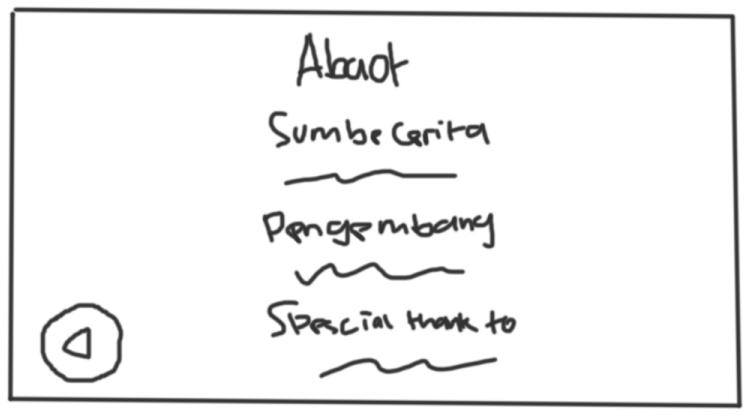 Abaot
Sumbe Cerita
Pengembang
Spescial thank to